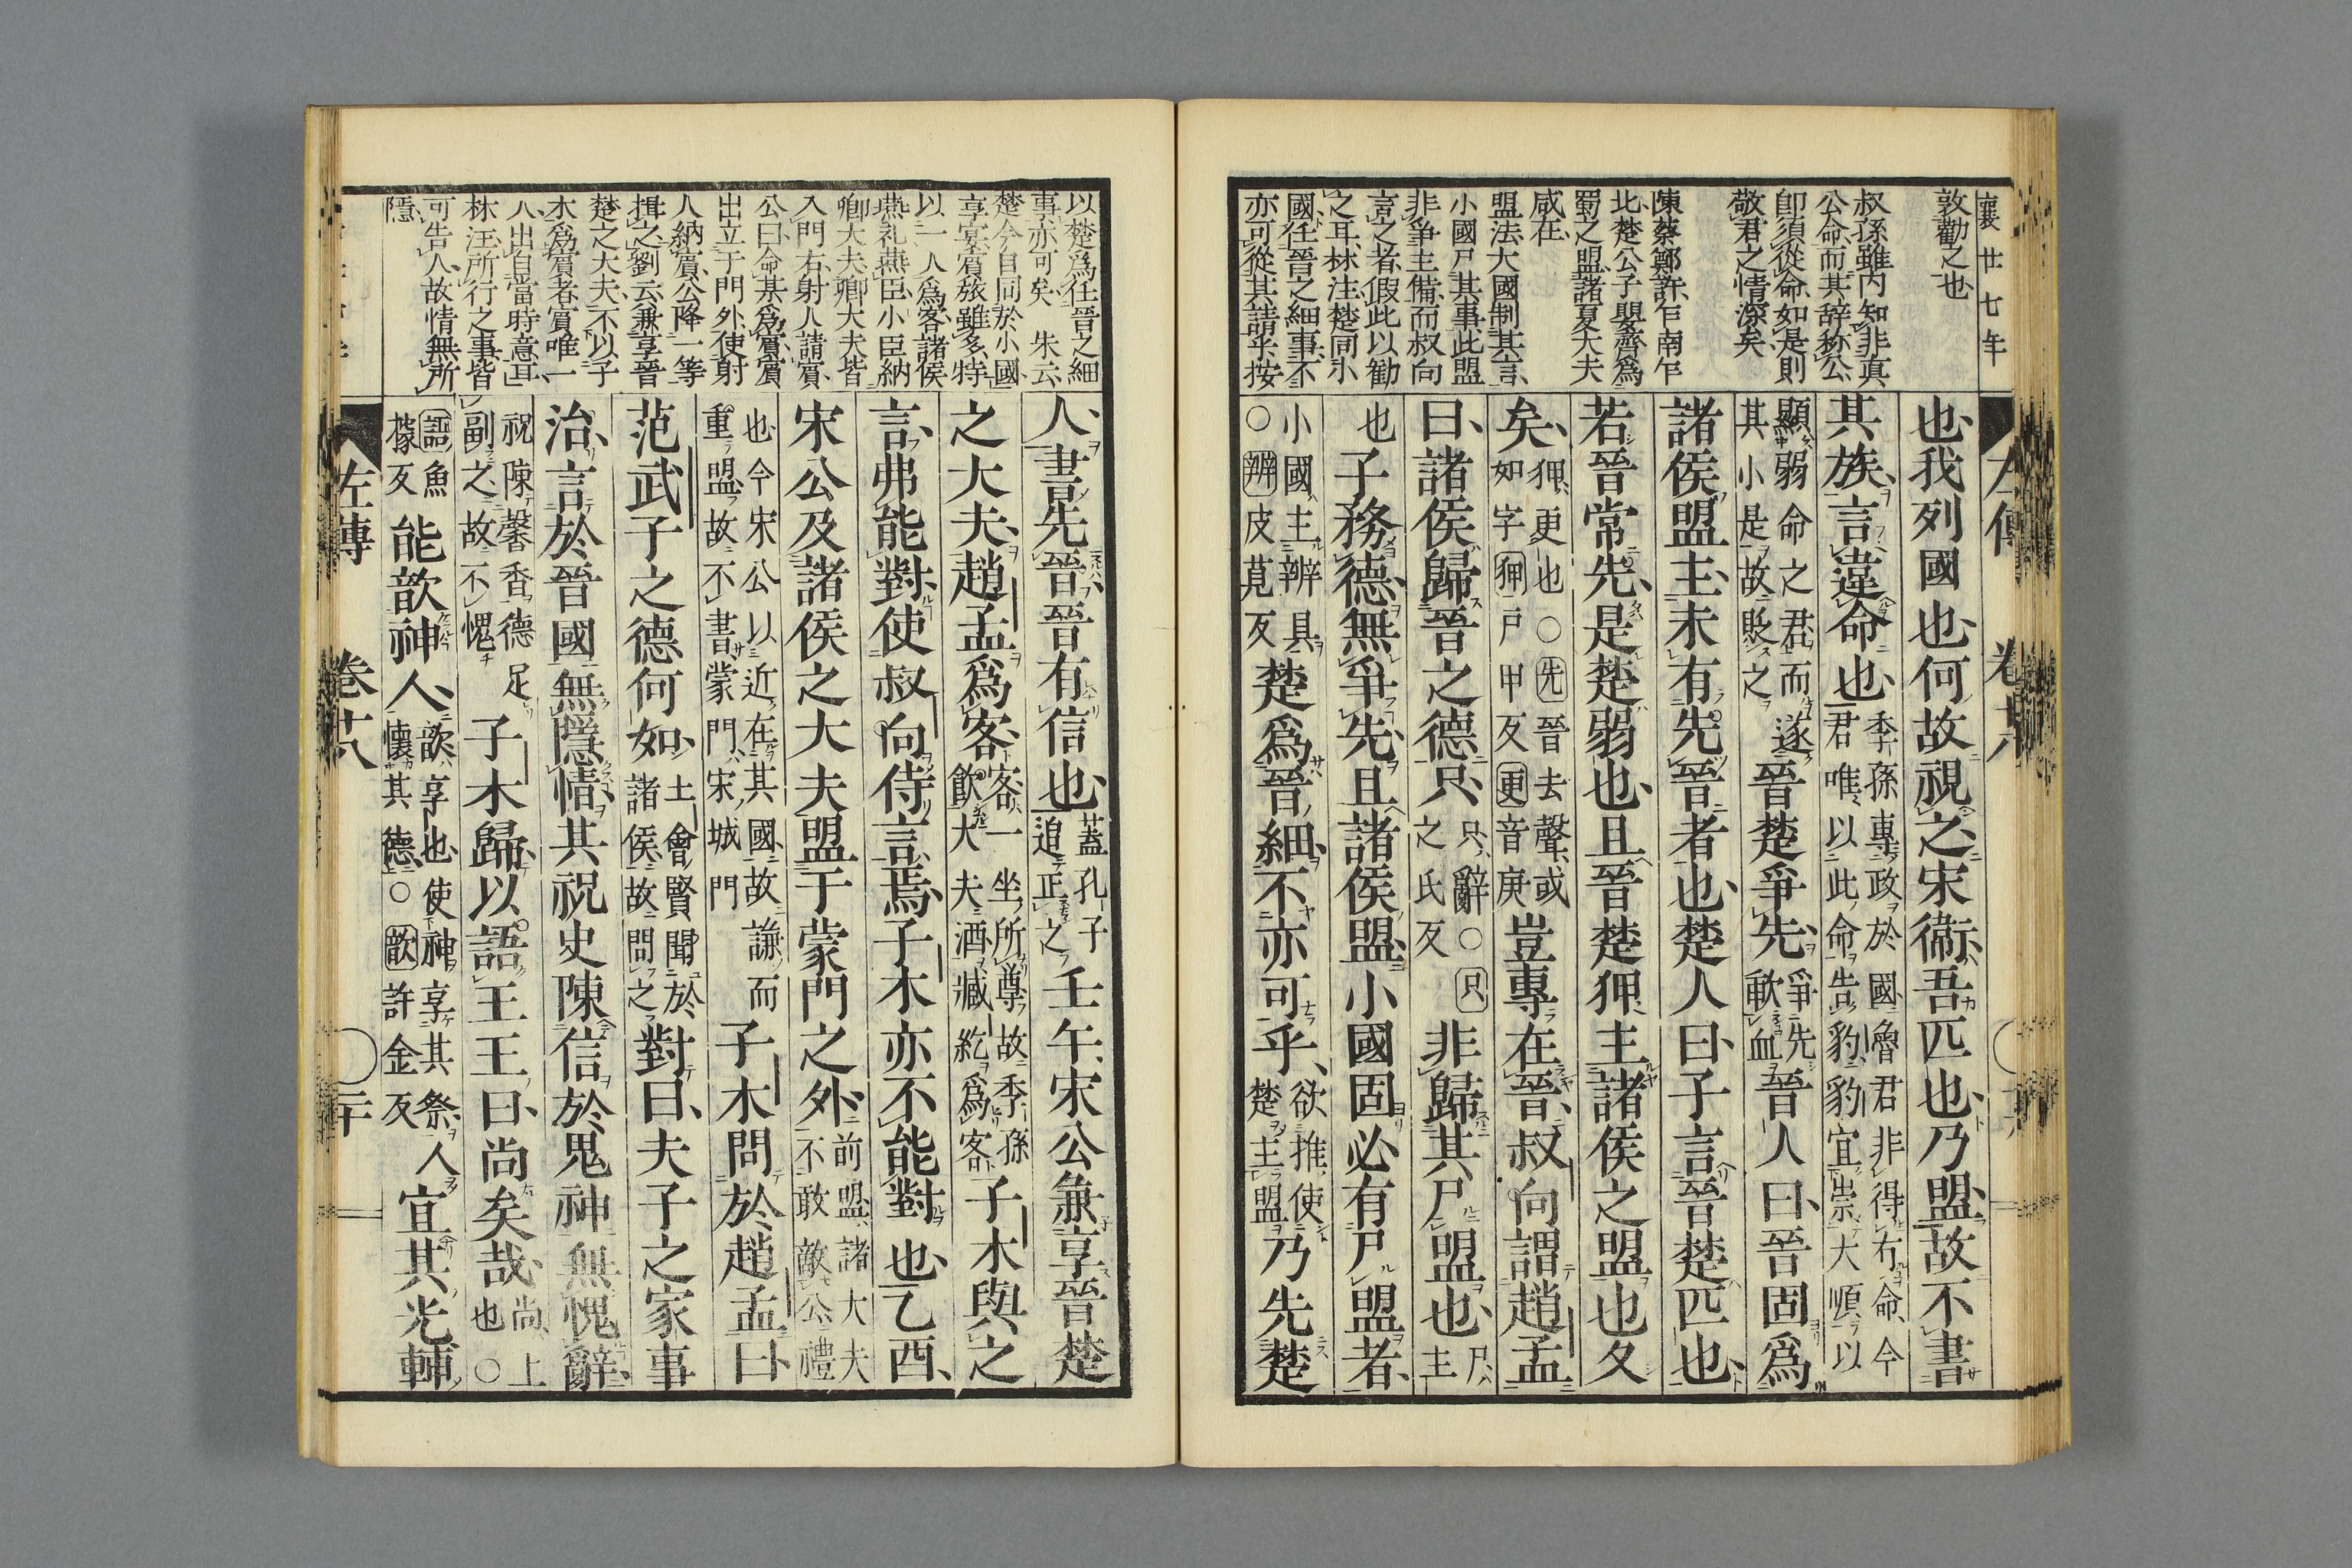 襄廿七年
敦勸之也
叔孫雖内知非真
公命而其辞称公
即須從命如是則
敬君之情深矣
陳蔡鄭許乍南乍
北楚公子嬰齊爲
蜀之盟諸夏大夫
咸在
盟法大國制其言
小國尸其事此盟
非爭主備而叔向
言之者假此以勸
之耳林注楚同小
國任晉之細事不
亦可從其請乎按
也我列國也何故視之宋衛吾匹也乃盟故不書
其族言違命也季孫專政於國魯君非得有命今君唯以此命告豹豹宜崇大順以
顯弱命之君而遂其小是故貶之晉楚爭先爭先歃血晉人曰晉固爲
諸侯盟主未有先晉者也楚人曰子言晉楚匹也
若晉常先是楚弱也且晉楚狎主諸侯之盟也久
矣狎更也○先晉去聲或如字狎戸甲反更音庚豈專在晉叔向謂趙孟
曰諸侯歸晉之德只只辭○只之氏反非歸其尸盟也尸主
也子務德無爭先且諸侯盟小國固必有尸盟者
小國主辨具○辨皮莧反楚爲晉細不亦可乎欲推使楚主盟乃先楚
以楚爲任晉之細
事亦可矣 朱云
楚今自同於小國
享宴賓旅雖多特
以一人爲客諸侯
燕礼燕臣小臣納
卿大夫卿大夫皆
入門右射人請賓
公曰命某爲賓賓
出立于門外使射
人納賓公降一等
揖之劉云兼享晉
楚之大夫不以子
木爲賓者賓唯一
人出自當時意耳
林汪所行之事皆
可告人故情無所
隱
人書先晉晉有信也蓋孔子追正之壬午宋公兼享晉楚
之大夫趙孟爲客客一坐所尊故季孫飲大夫酒臧紇爲客子木與之
言弗能對使叔向侍言焉子木亦不能對也乙酉
宋公及諸侯之大夫盟于蒙門之外前盟諸大夫不敢敵公禮
也今宋公以近在其國故謙而重盟故不書蒙門宋城門子木問於趙孟曰
范武子之德何如士會賢聞於諸侯故問之對曰夫子之家事
治言於晉國無隱情其祝史陳信於鬼神無愧辭
祝陳馨香德足副之故不愧子木歸以語王王曰尚矣哉尚上也○
語魚據反能歆神人歆享也使神享其祭人懷其德○歆許金反宜其光輔
左傳 卷十八 二十